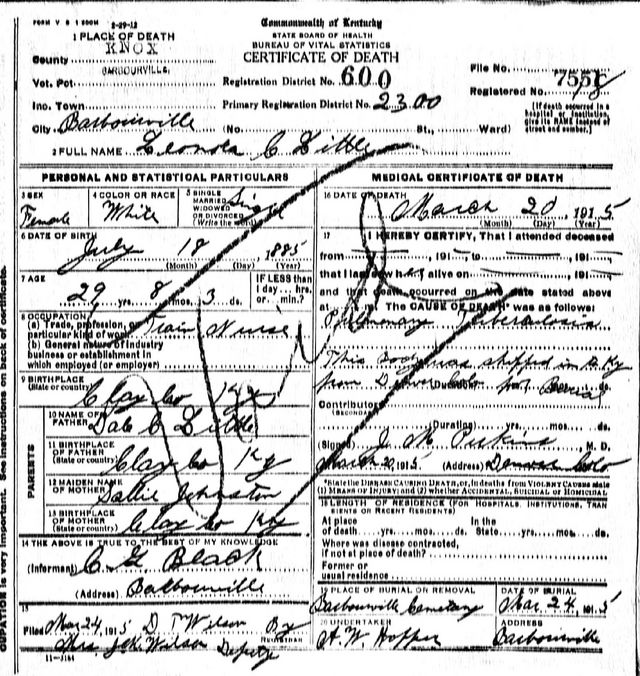 FORM V S 1 500M 2-29-12
Commonwealth of Kentucky
STATE BOARD OF HEALTH
BUREAU OF VITAL STATISTICS
CERTIFICATE OF DEATH
1 PLACE OF DEATH
KNOX
County
BARBOURVILLE,
Vot. Pct.
Inc. Town
City Barbourville (No. St., Ward)
Registration District No. 600
Primary Registration District No. 2300
File No.
7558
Registered No. 18
[If death occurred in a hospital or institution, give its NAME instead of street and number.]
2 FULL NAME Leonora C Little
PERSONAL AND STATISTICAL PARTICULARS
3 SEX
Female
4 COLOR OR RACE
White
5 SINGLE
MARRIED
WIDOWED
OR DIVORCED
(Write the word)
Single
6 DATE OF BIRTH
July 18, 1885
(Month) (Day) (Year)
7 AGE
29 yrs. 8 mos. 3 ds.
IF LESS than
1 day... hrs.
or min.?
8 OCCUPATION
(a) Trade, profession, or
particular kind of work
Train Nurse
(b) General nature of industry
business or establishment in
which employed (or employer)
9 BIRTHPLACE
(State or country)
Clay Co Ky
PARENTS
10 NAME OF
FATHER
Dale C Little
11 BIRTHPLACE
OF FATHER
(State or country)
Clay Co Ky
12 MAIDEN NAME
OF MOTHER
Sallie Johnston
13 BIRTHPLACE
OF MOTHER
(State or country)
Clay Co Ky
14 THE ABOVE IS TRUE TO THE BEST OF MY KNOWLEDGE
(Informant) C. G. Black
(Address) Barbourville
15
Filed Mar 24, 1915 D T Wilson By
REGISTRAR
Mrs J.K. Wilson Deputy
11-3184
MEDICAL CERTIFICATE OF DEATH
16 DATE OF DEATH
March 20, 1915
(Month) (Day) (Year)
17 I HEREBY CERTIFY, That I attended deceased
from , 191 to , 191
that I last saw h alive on , 191
and that death occurred on the date stated above
at m. The CAUSE OF DEATH* was as follows:
Pulmonary Tuberculosis
This body was shipped in to Ky
from Denver Colo for Burial
(Duration) yrs. mos. ds.
Contributory
(SECONDARY)
(Duration) yrs. mos. ds.
(Signed) J. M. Perkins M. D.
March 20, 1915 (Address) Denver Colo
*State the DISEASE CAUSING DEATH, or, in deaths from VIOLENT CAUSES state (1) MEANS OF INJURY; and (2) whether ACCIDENTAL, SUICIDAL OR HOMICIDAL.
18 LENGTH OF RESIDENCE (FOR HOSPITALS, INSTITUTIONS, TRANSIENTS OR RECENT RESIDENTS)
At place In the
of death yrs. mos. ds. State yrs. mos. ds.
Where was disease contracted,
if not at place of death?
Former or
usual residence
19 PLACE OF BURIAL OR REMOVAL
Barbourville Cemetary
DATE OF BURIAL
Mar. 24, 1915
20 UNDERTAKER
A. W. Hopper
ADDRESS
Barbourville
OCCUPATION is very important. See instructions on back of certificate.